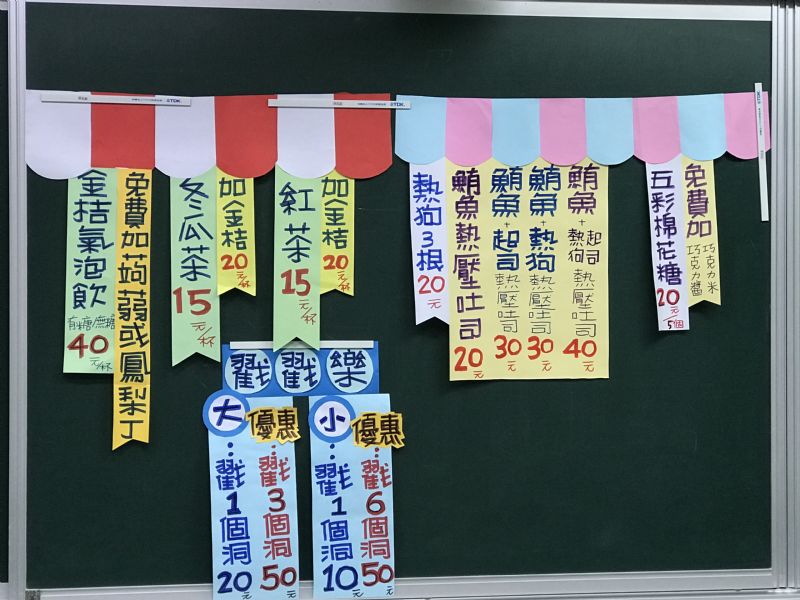 金桔氣泡飲
有糖/無糖
40元/杯
免費加蒟蒻或鳳梨丁
冬瓜茶
15元/杯
加金桔
20元/杯
紅茶
15元/杯
加金桔
20元/杯
熱狗3根
20元
鮪魚熱壓吐司
20元
鮪魚+起司熱壓吐司
30元
鮪魚+熱狗熱壓吐司
30元
鮪魚+起司熱狗熱壓吐司
40元
五彩棉花糖
20元/5個
免費加
巧克力米
巧克力醬
戳戳樂
大:戳1個洞20元
優惠:戳3個洞50元
小:戳1個洞10元
優惠:戳6個洞50元
TDK
TDK